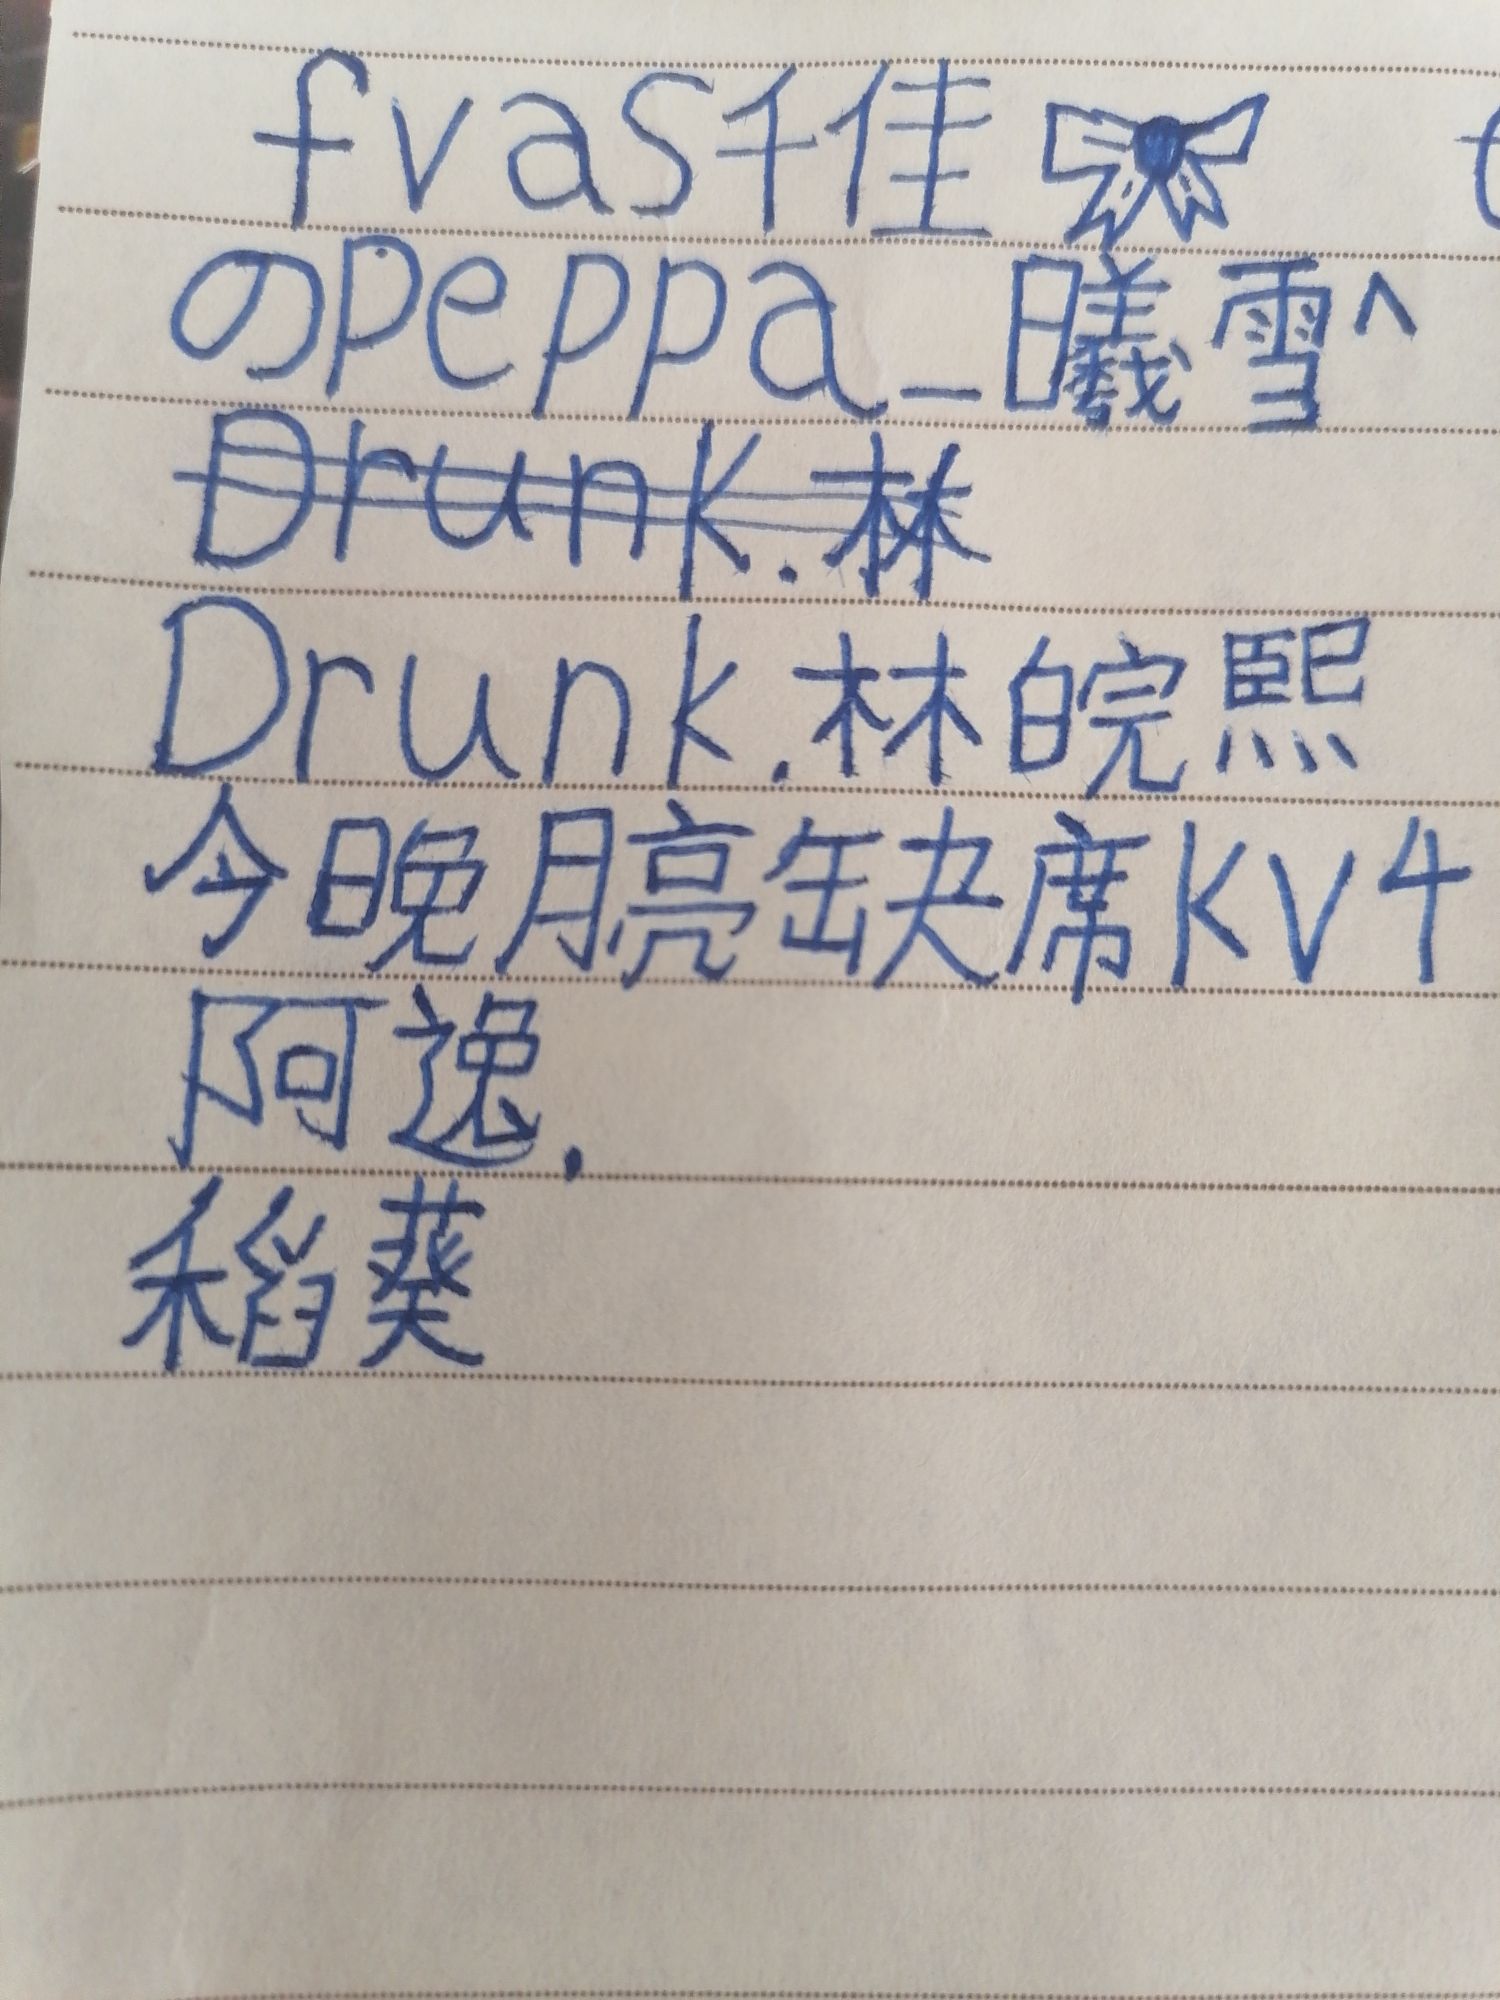 fvas千佳
のpeppa_曦雪^
Drunk.林
Drunk.林皖熙
今晚月亮缺席KV4
阿逸.
稻葵